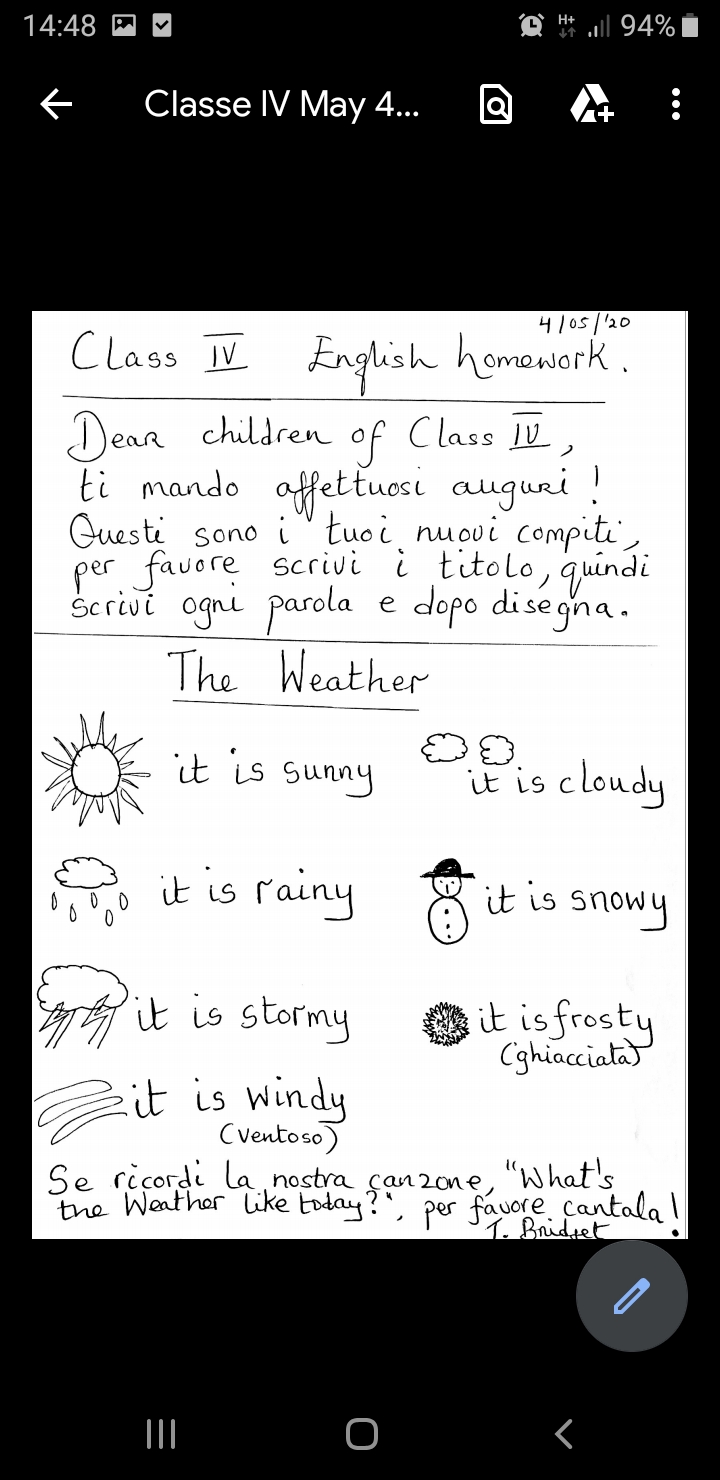 14:48 H+ 94%
Classe IV May 4...
4/05/'20
Class IV English homework.
Dear children of Class IV,
ti mando affettuosi auguri!
Questi sono i tuoi nuovi compiti,
per favore scrivi i titolo, quindi
scrivi ogni parola e dopo disegna.
The Weather
it is sunny
it is cloudy
it is rainy
it is snowy
it is stormy
it is frosty
(ghiacciata)
it is windy
(ventoso)
Se ricordi la nostra canzone, "What's
the Weather like today?", per favore cantala!
T. Bridget